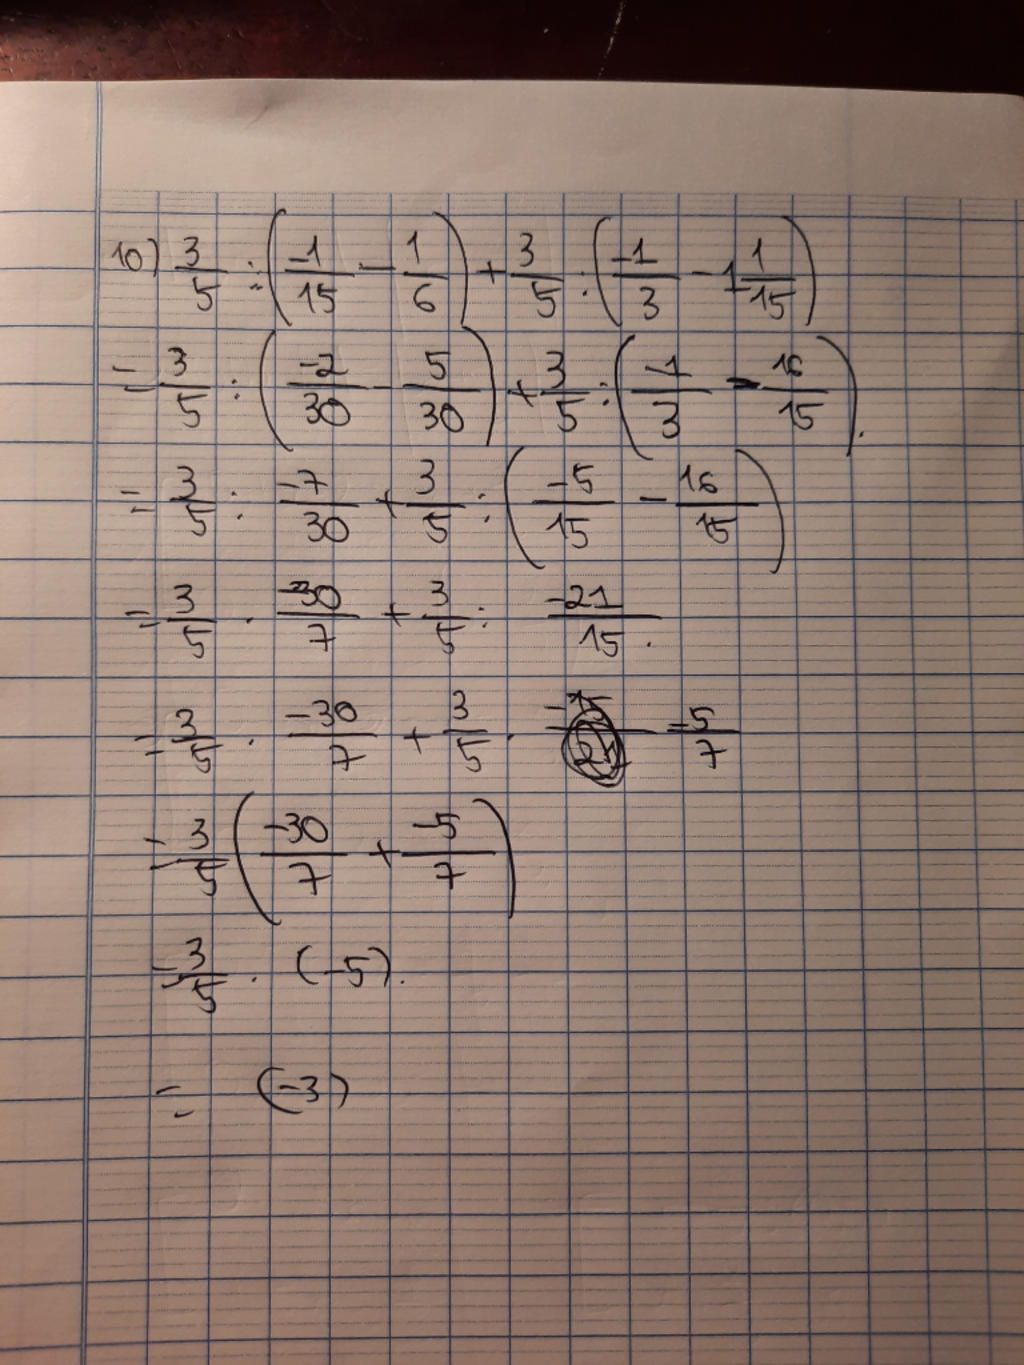 10) 3/5 : (-1/15 - 1/6) + 3/5 : (-1/3 - 1 1/15)
= 3/5 : (-2/30 - 5/30) + 3/5 : (-1/3 - 16/15).
= 3/5 : -7/30 + 3/5 : (-5/15 - 16/15)
= 3/5 . -30/7 + 3/5 : -21/15.
= 3/5 . -30/7 + 3/5 . -5/7
= 3/5 (-30/7 + -5/7)
= 3/5 . (-5).
= (-3)